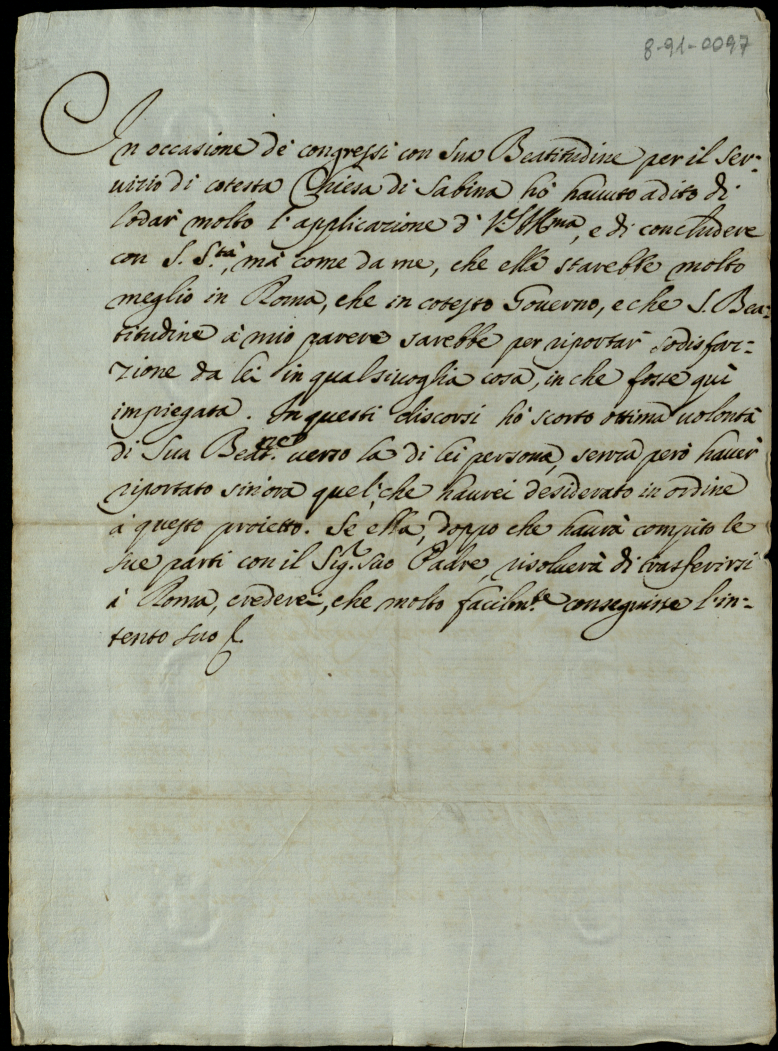 8-91-0097
In occasione de' congressi con Sua Beatitudine per il Ser-
uizio di cotesta Chiesa di Sabina hò hauuto adito di
lodar' molto l'applicazione di V.S. Ill.ma, e di concludere
con S. S.tà, mà come da me, che ella starebbe molto
meglio in Roma, che in cotesto Gouerno, e che S. Bea-
titudine à mio parere sarebbe per riportar' sodisfat-
zione da lei in qualsiuoglia cosa, in che fosse quì
impiegata. In questi discorsi hò scorto ottima uolontà
di Sua Beat.ne uerso la di lei persona, senza però hauer'
riportato sin'ora quel, che haurei desiderato in ordine
à questo proietto. Se ella, doppo che haurà compito le
sue parti con il Sig.r suo Padre, risoluerà di trasferirsi
à Roma, crederei, che molto facilm.te conseguisse l'in-
tento suo